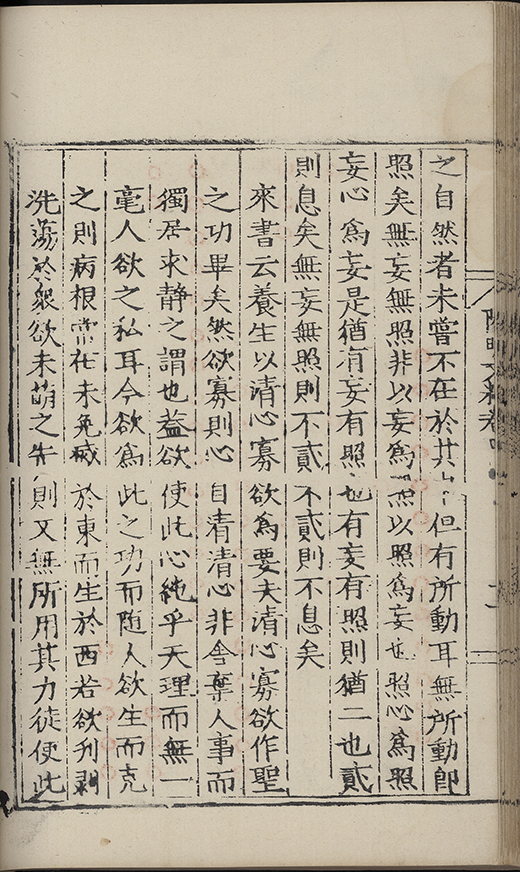 之自然者未嘗不在於其中但有所動耳無所動卽
照矣無妄無照非以妄爲照以照爲妄也照心爲照
妄心爲妄是猶有妄有照也有妄有照則猶二也貳
則息矣無妄無照則不貳不貳則不息矣
來書云養生以清心寡欲爲要夫清心寡欲作聖
之功畢矣然欲寡則心自清清心非舍棄人事而
獨居求静之謂也蓋欲使此心純乎天理而無一
毫人欲之私耳今欲爲此之功而随人欲生而克
之則病根常在未免滅於東而生於西若欲刋剥
洗蕩於衆欲未萌之先則又無所用其力徒使此
陽明文 卷